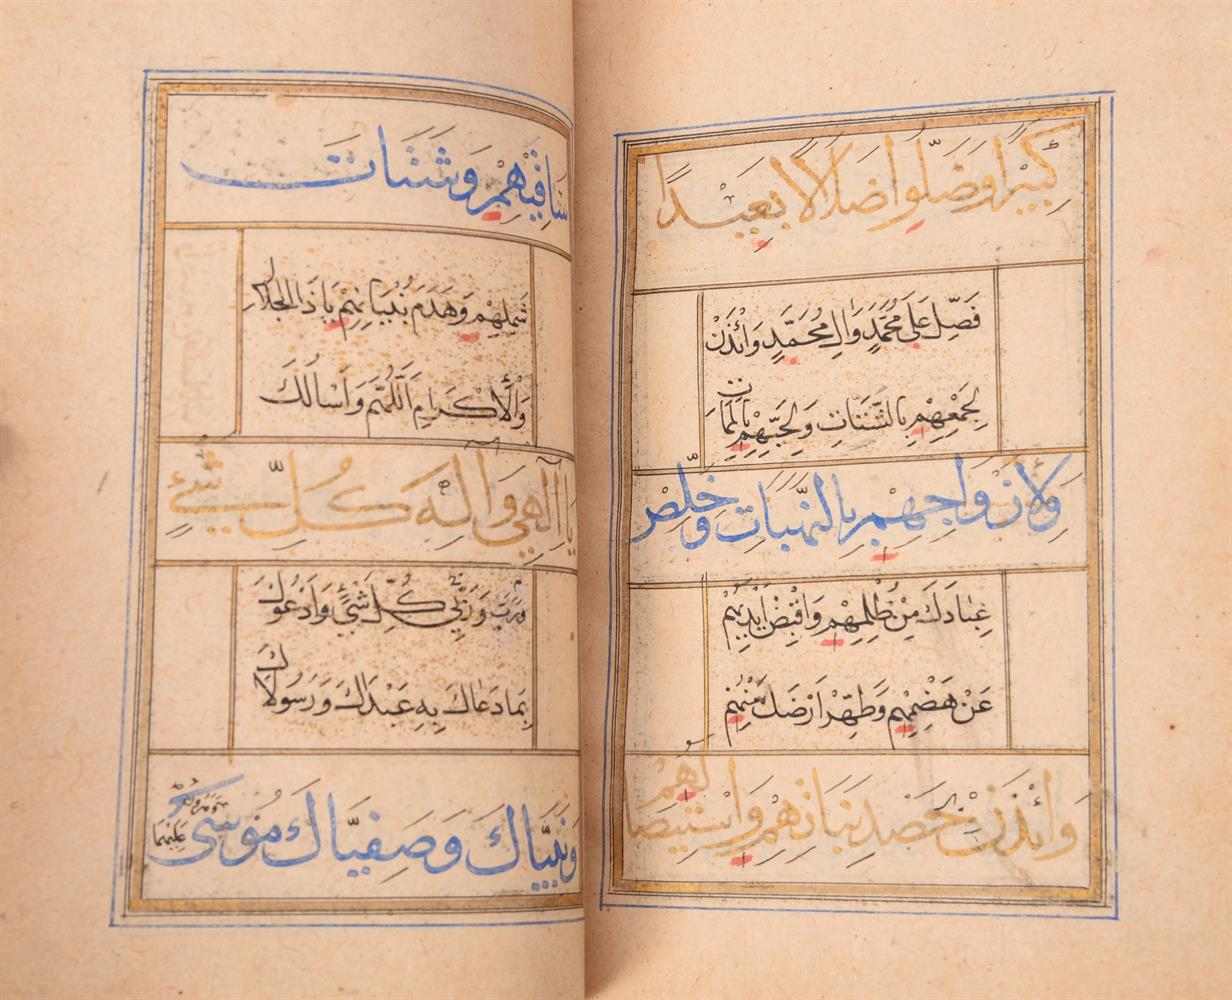 كَبِيرًا وَضَلُّوا ضَلَالًا بَعِيدًا
فَصَلِّ عَلَى مُحَمَّدٍ وَالِ مُحَمَّدٍ وَأْذَنْ
لِجَمْعِهِمْ بِالشَّتَاتِ وَلِحَيِّهِمْ بِالْمَمَاتِ
وَلِأَزْوَاجِهِمْ بِالنَّهَبَاتِ وَخَلِّصْ
عِبَادَكَ مِنْ ظُلْمِهِمْ وَاقْبِضْ اَيْدِيَهُمْ
عَنْ هَضْمِهِمْ وَطَهِّرْ اَرْضَكَ مِنْهُمْ
وَأْذَنْ بِحَصْدِ نَبَاتِهِمْ وَاسْتِيصَا
لِهِمْ
سَافِيهِمْ وَشَتَاتِ
شَمْلِهِمْ وَهَدْمِ بُنْيَانِهِمْ يَا ذَا الْجَلَالِ
وَالْاِكْرَامِ اَللّٰهُمَّ وَاَسْأَلُكَ
يَا اِلٰهِي وَاِلٰهَ كُلِّ شَيْءٍ
وَرَبِّي وَرَبَّ كُلِّ شَيْءٍ وَاَدْعُوكَ
بِمَا دَعَاكَ بِهِ عَبْدَاكَ وَرَسُولَاكَ
وَنَبِيَّاكَ وَصَفِيَّاكَ مُوسَى
وَهٰرُونُ
عَلَيْهِمَا